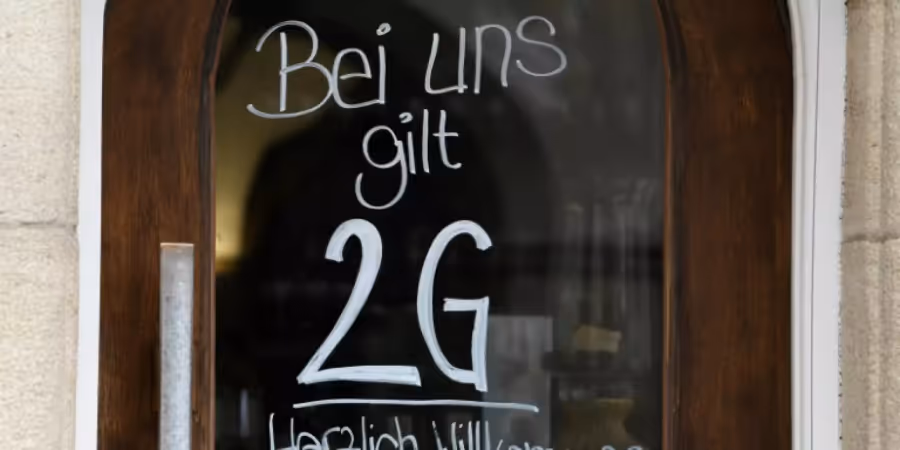 Bei uns
gilt
2G
Herzlich Willkommen